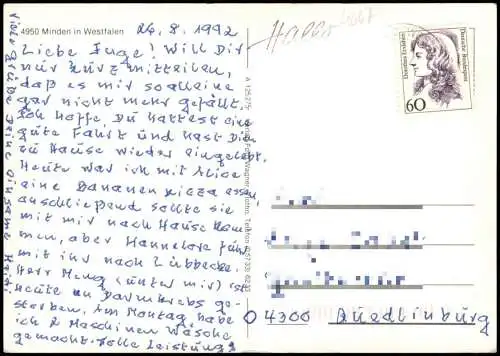 4950 Minden in Westfalen
26.8.1992
Liebe Inge! Will Dir
nur kurz mitteilen,
daß es mir so alleine
gar nicht mehr gefällt.
Ich hoffe, Du hattest eine
gute Fahrt und hast Dich
zu Hause wieder eingelebt.
Heute war ich mit Alice
eine Bananenpizza essen,
anschließend sollte sie
mit mir nach Hause kom
men, aber Hannelore fuhr
mit ihr nach Lübbecke.
Herr Meng (unter mir) ist
heute an Darmkrebs ge-
storben. Am Montag habe
ich 2 Maschinen Wäsche
gemacht. Tolle Leistung?
Viele Grüße Deine einsame Heidi
Deutsche Bundespost
60
O 4300 Quedlinburg